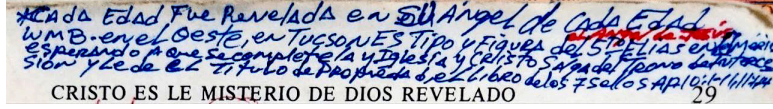 *Cada Edad Fue Revelada en SU Ángel de Cada Edad
el Ángel de Jesús
WMB. en el Oeste, en Tucson ES Tipo y Figura del 5to ELIAS en
esperando A que se complete la Iglesia y Cristo Salga del Trono de Interce
sion y le de EL Titulo de Propiedad, el Libro de los 7 Sellos AP.10:1-11,
CRISTO ES LE MISTERIO DE DIOS REVELADO 29